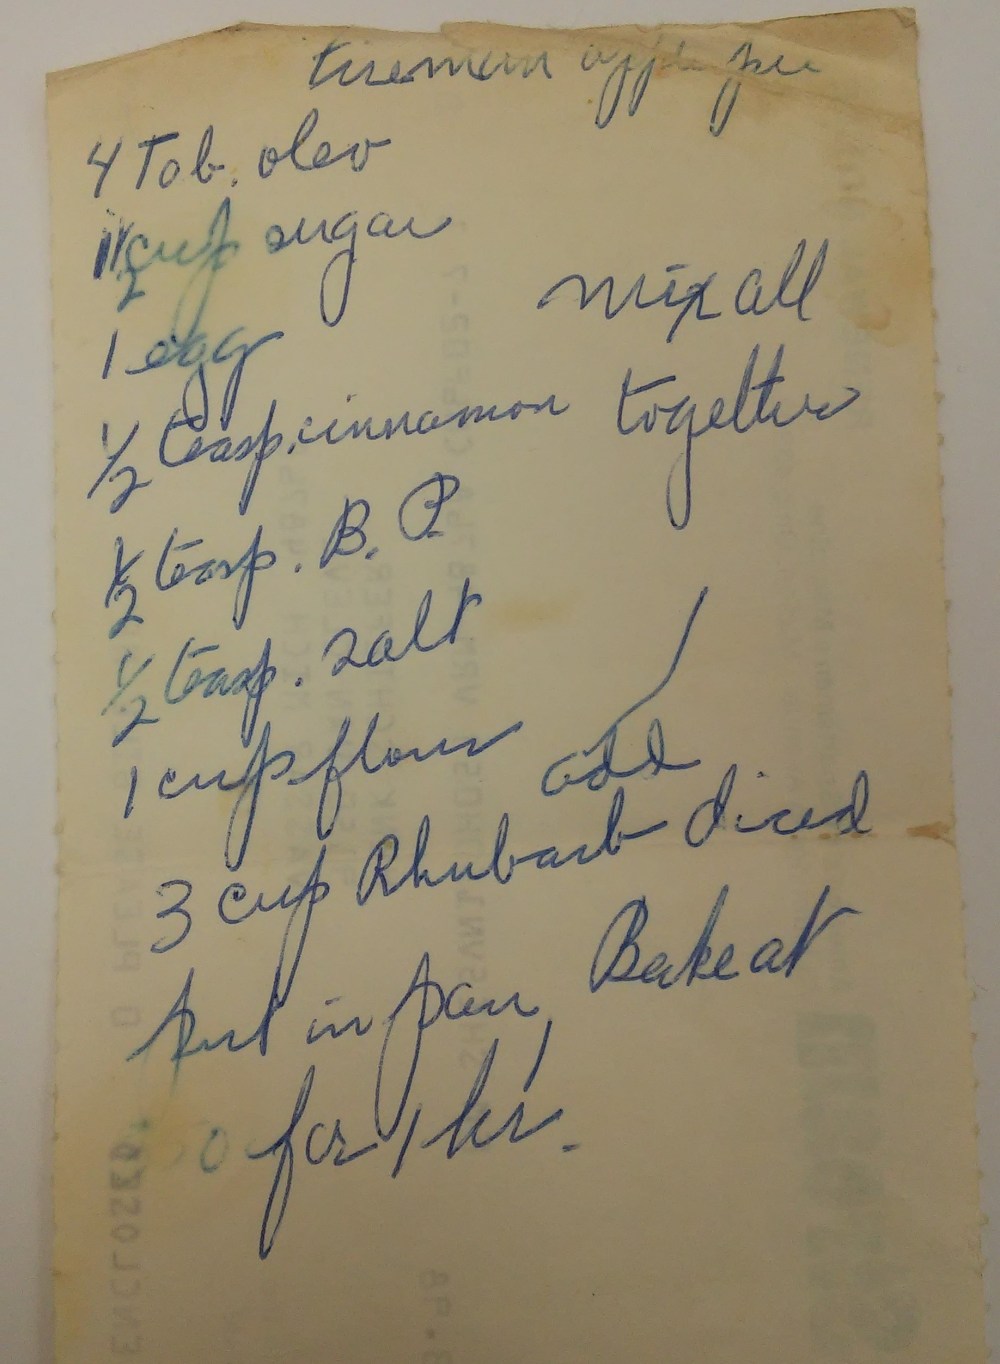 fireman apple pie
4 Tob. oleo
cup sugar
1 egg
mix all
1/2 teasp. cinnamon together
1/2 teasp. B. P.
1/2 teasp. salt
1 cup flour
add
3 cup Rhubarb diced
Put in pan, Bake at
for 1 hr.